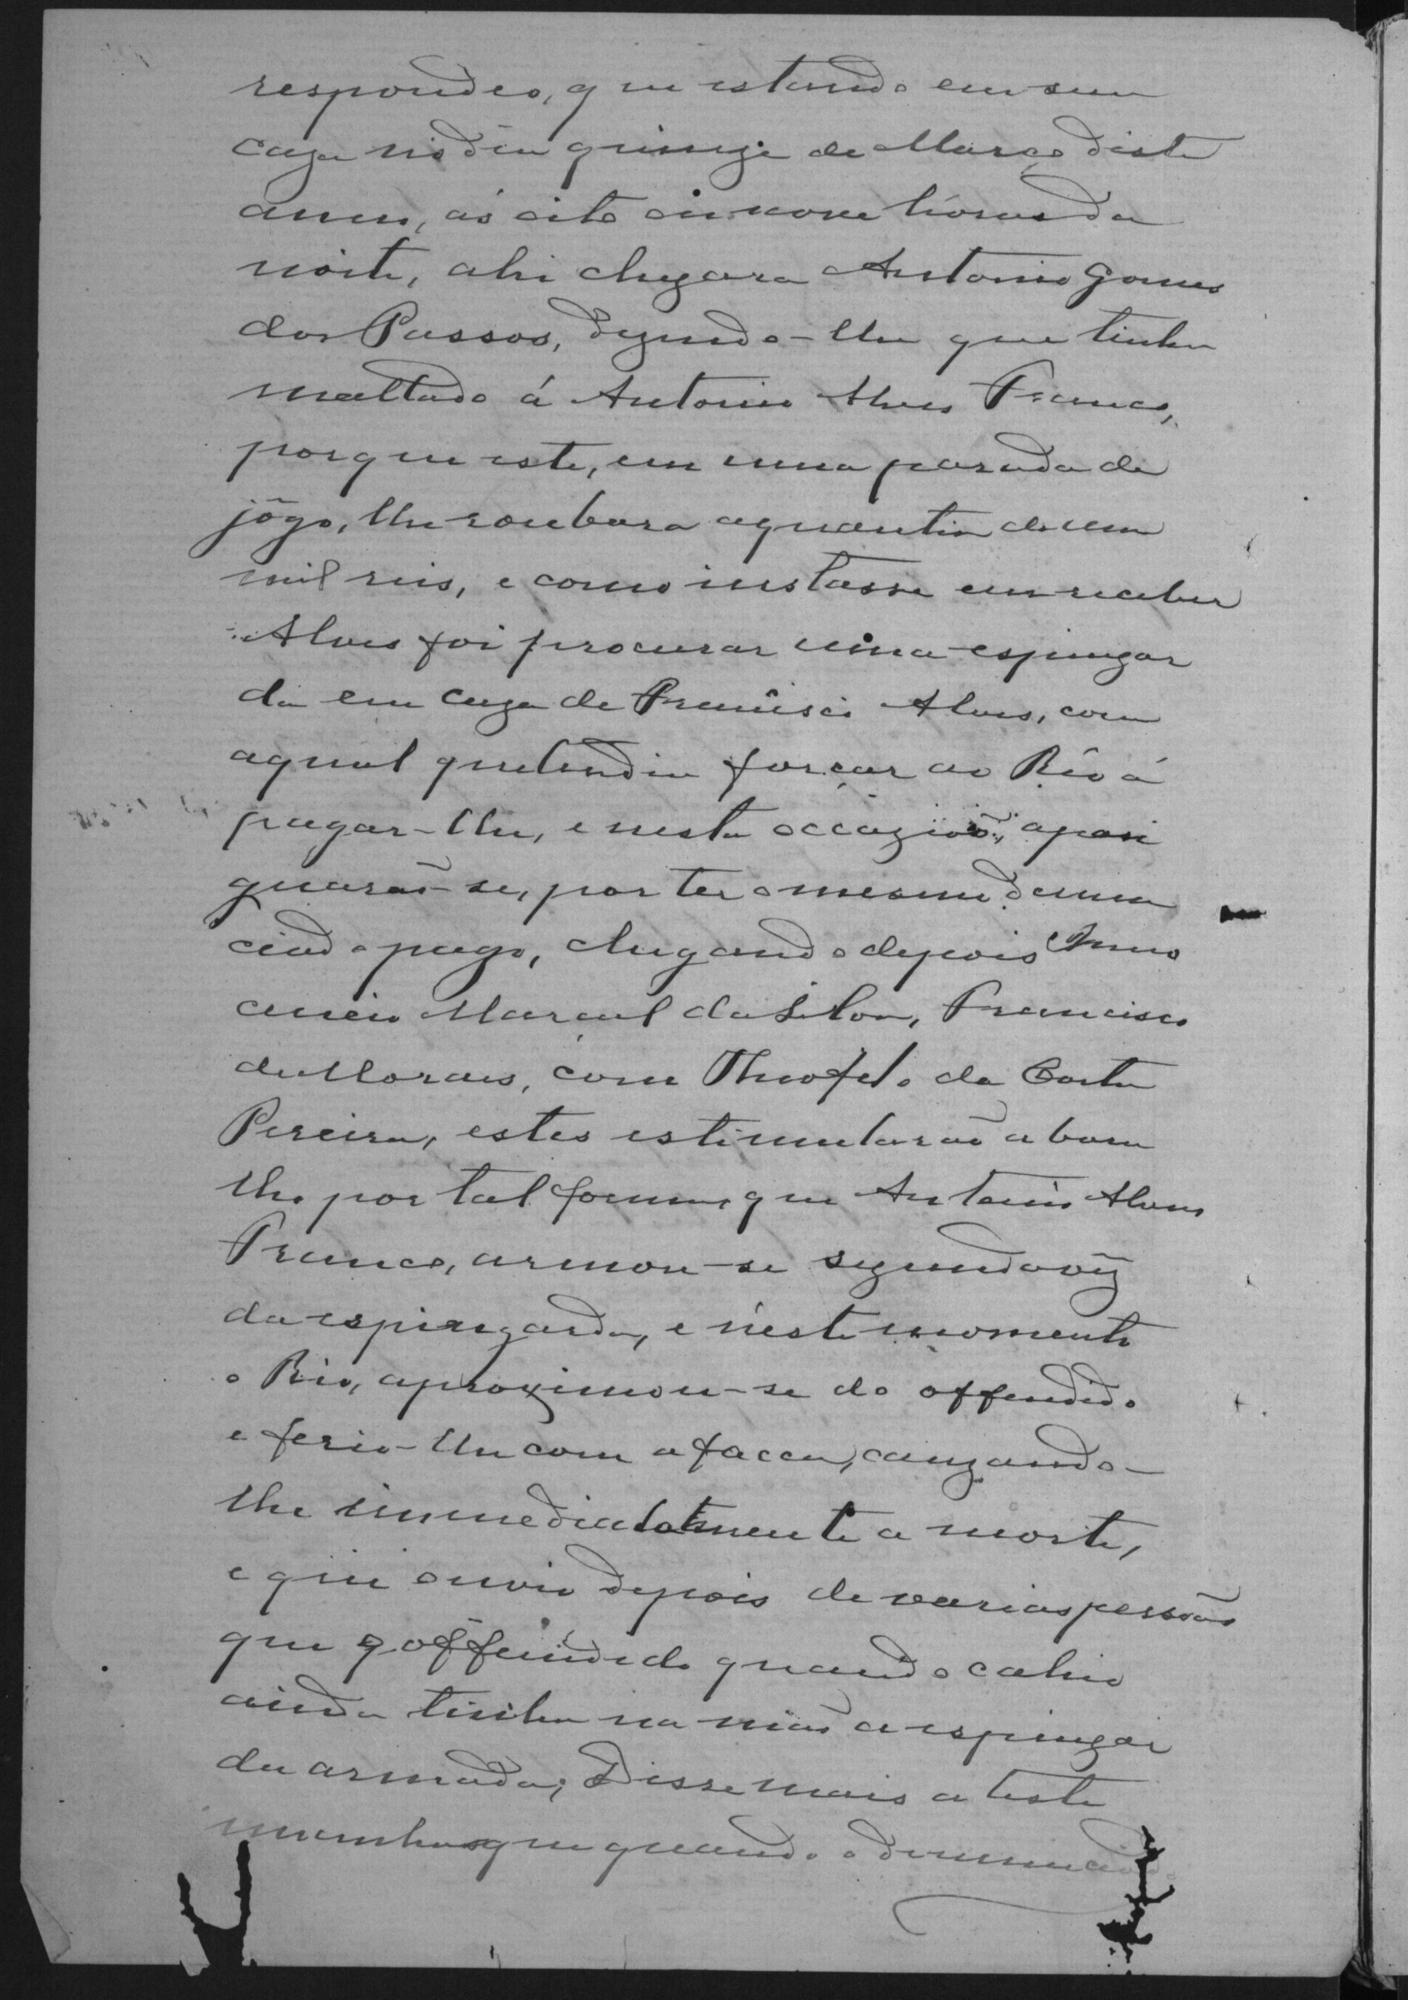 respondeo, que estando em sua
caza no dia quinze de Março deste
anno, as oito ou nove hóras da
noite, ahi chegara Antonio Gomes
dos Passos, dizendo-lhe que tinha
mattado á Antonio Alves Franco,
porque este, em uma parada de
jôgo, lhe roubara a quantia de um
mil reis, e como instasse em receber
Alves foi procurar uma espingar
da em caza de Francisco Alves, com
a qual pretendia forçar ao Réo á
pagar-lhe, e nesta occazião, apasi
guarão-se, por ter o mesmo denun
ciado pago, chegando depois Inno
cencio Marçal da Silva, Francisco
de Moraes, com Theofilo da Costa
Pereira, estes estimularão a bara
lho por tal forma, que Antonio Alves
Franco, armou-se segunda vez
da espingarda, e n'este momento
o Réo, aproximou-se do offendido
e ferio-lhe com a facca, cauzando-
lhe immediatamente a morte,
e que ouvio depois de varias pessôas
que o offendido quando cahio
ainda tinha na mão a espingar
da armada; Disse mais a teste
munha que quando o denunciado